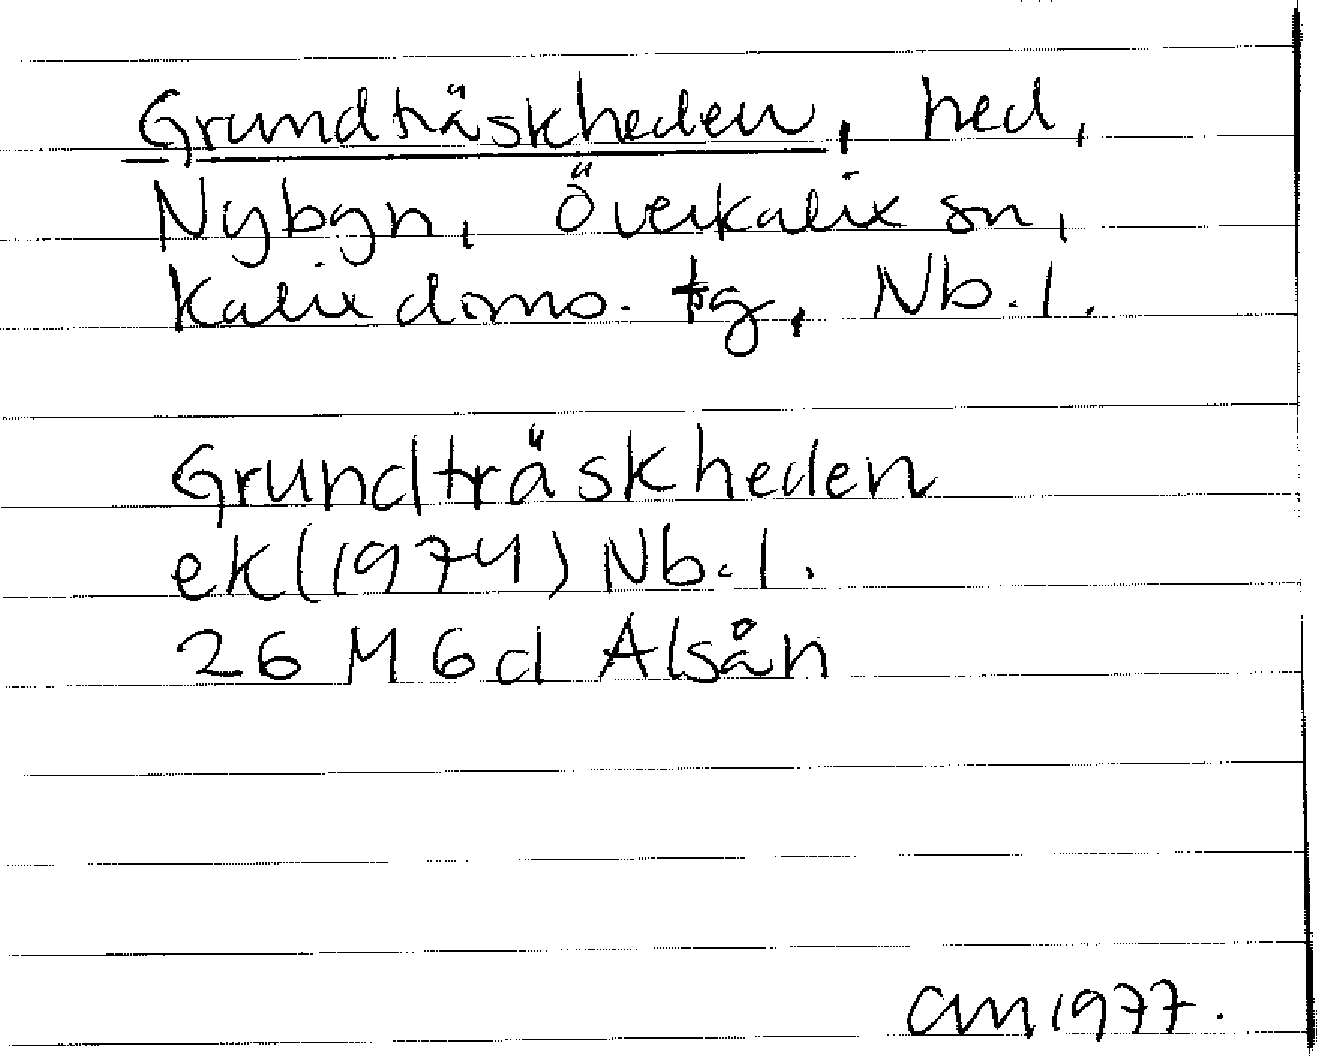 Grundträskheden, hed,
Nybyn, Överkalix sn,
Kalix doms. tg, Nb. l.
Grundträskheden
ek (1974) Nb. l.
26 M 6d Alsån
CM 1977.